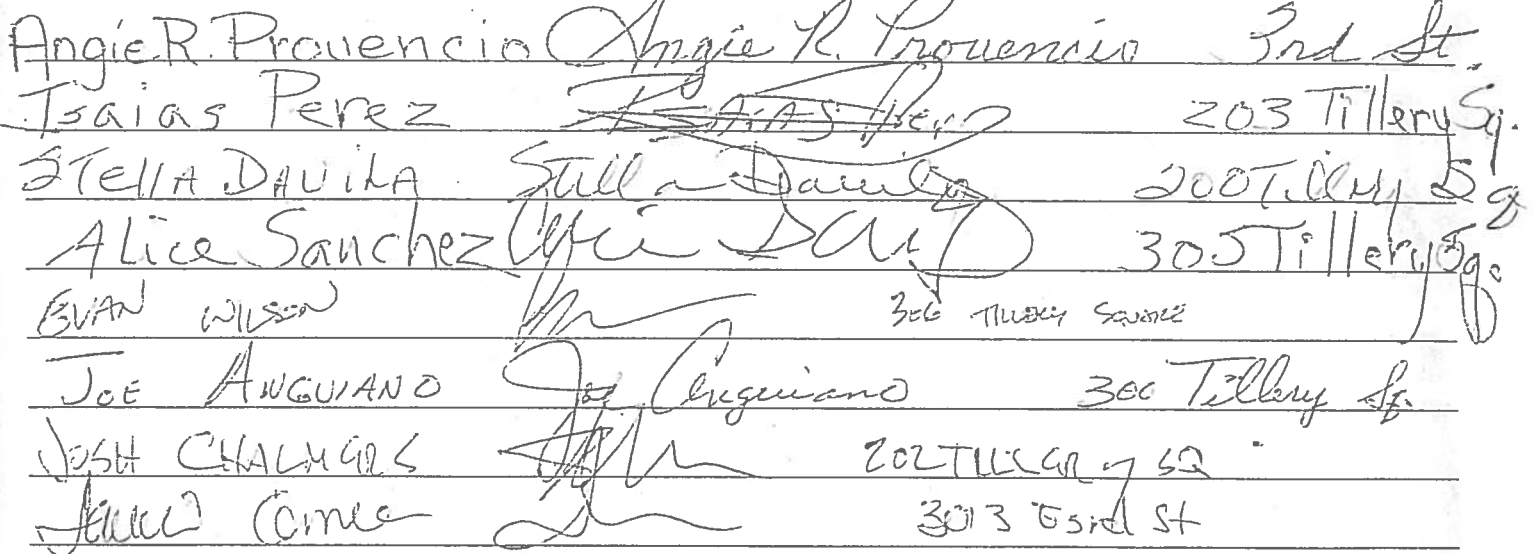 Angie R. Provencio Angie R. Provencio 3rd St.
Isaias Perez Isaias Perez 203 Tillery Sq.
STELLA DAVILA Stella Davila 200 Tillery Sq
Alice Sanchez 305 Tillery Sq.
EVAN WILSON 306 TILLERY SQUARE
JOE ANGUIANO Joe Anguiano 300 Tillery Sq.
JOSH CHALMERS 202 TILLERY SQ
3013 E 3rd St